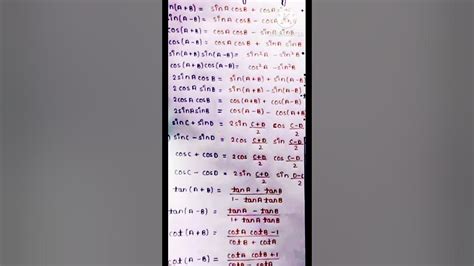 n(A+B) = sinA cosB + cosA
sin(A-B) = sinA cosB - cosA sinB
cos(A+B) = cosA cosB - sinA sinB
cos(A-B) = cosA cosB + sinA sinB
sin(A+B) sin(A-B) = sin²A - sin²B
cos(A+B) cos(A-B) = cos²A - sin²B
2sinA cosB = sin(A+B) + sin(A-B)
2 cosA sinB = sin(A+B) - sin(A-B)
2cosA cosB = cos(A+B) + cos(A-B)
2sinA sinB = cos(A-B) - cos(A+B)
sinC + sinD = 2sin (C+D)/2 cos (C-D)/2
) sinC - sinD = 2cos (C+D)/2 sin (C-D)/2
cosC + cosD = 2cos (C+D)/2 cos (C-D)/2
cosC - cosD = 2sin (C+D)/2 sin (D-C)/2
tan(A+B) = (tanA + tanB)/(1 - tanA tanB)
tan(A-B) = (tanA - tanB)/(1 + tanA tanB)
cot(A+B) = (cotA cotB - 1)/(cotB + cotA)
cot(A-B) = (cotA cotB + 1)/(cotB - cotA)